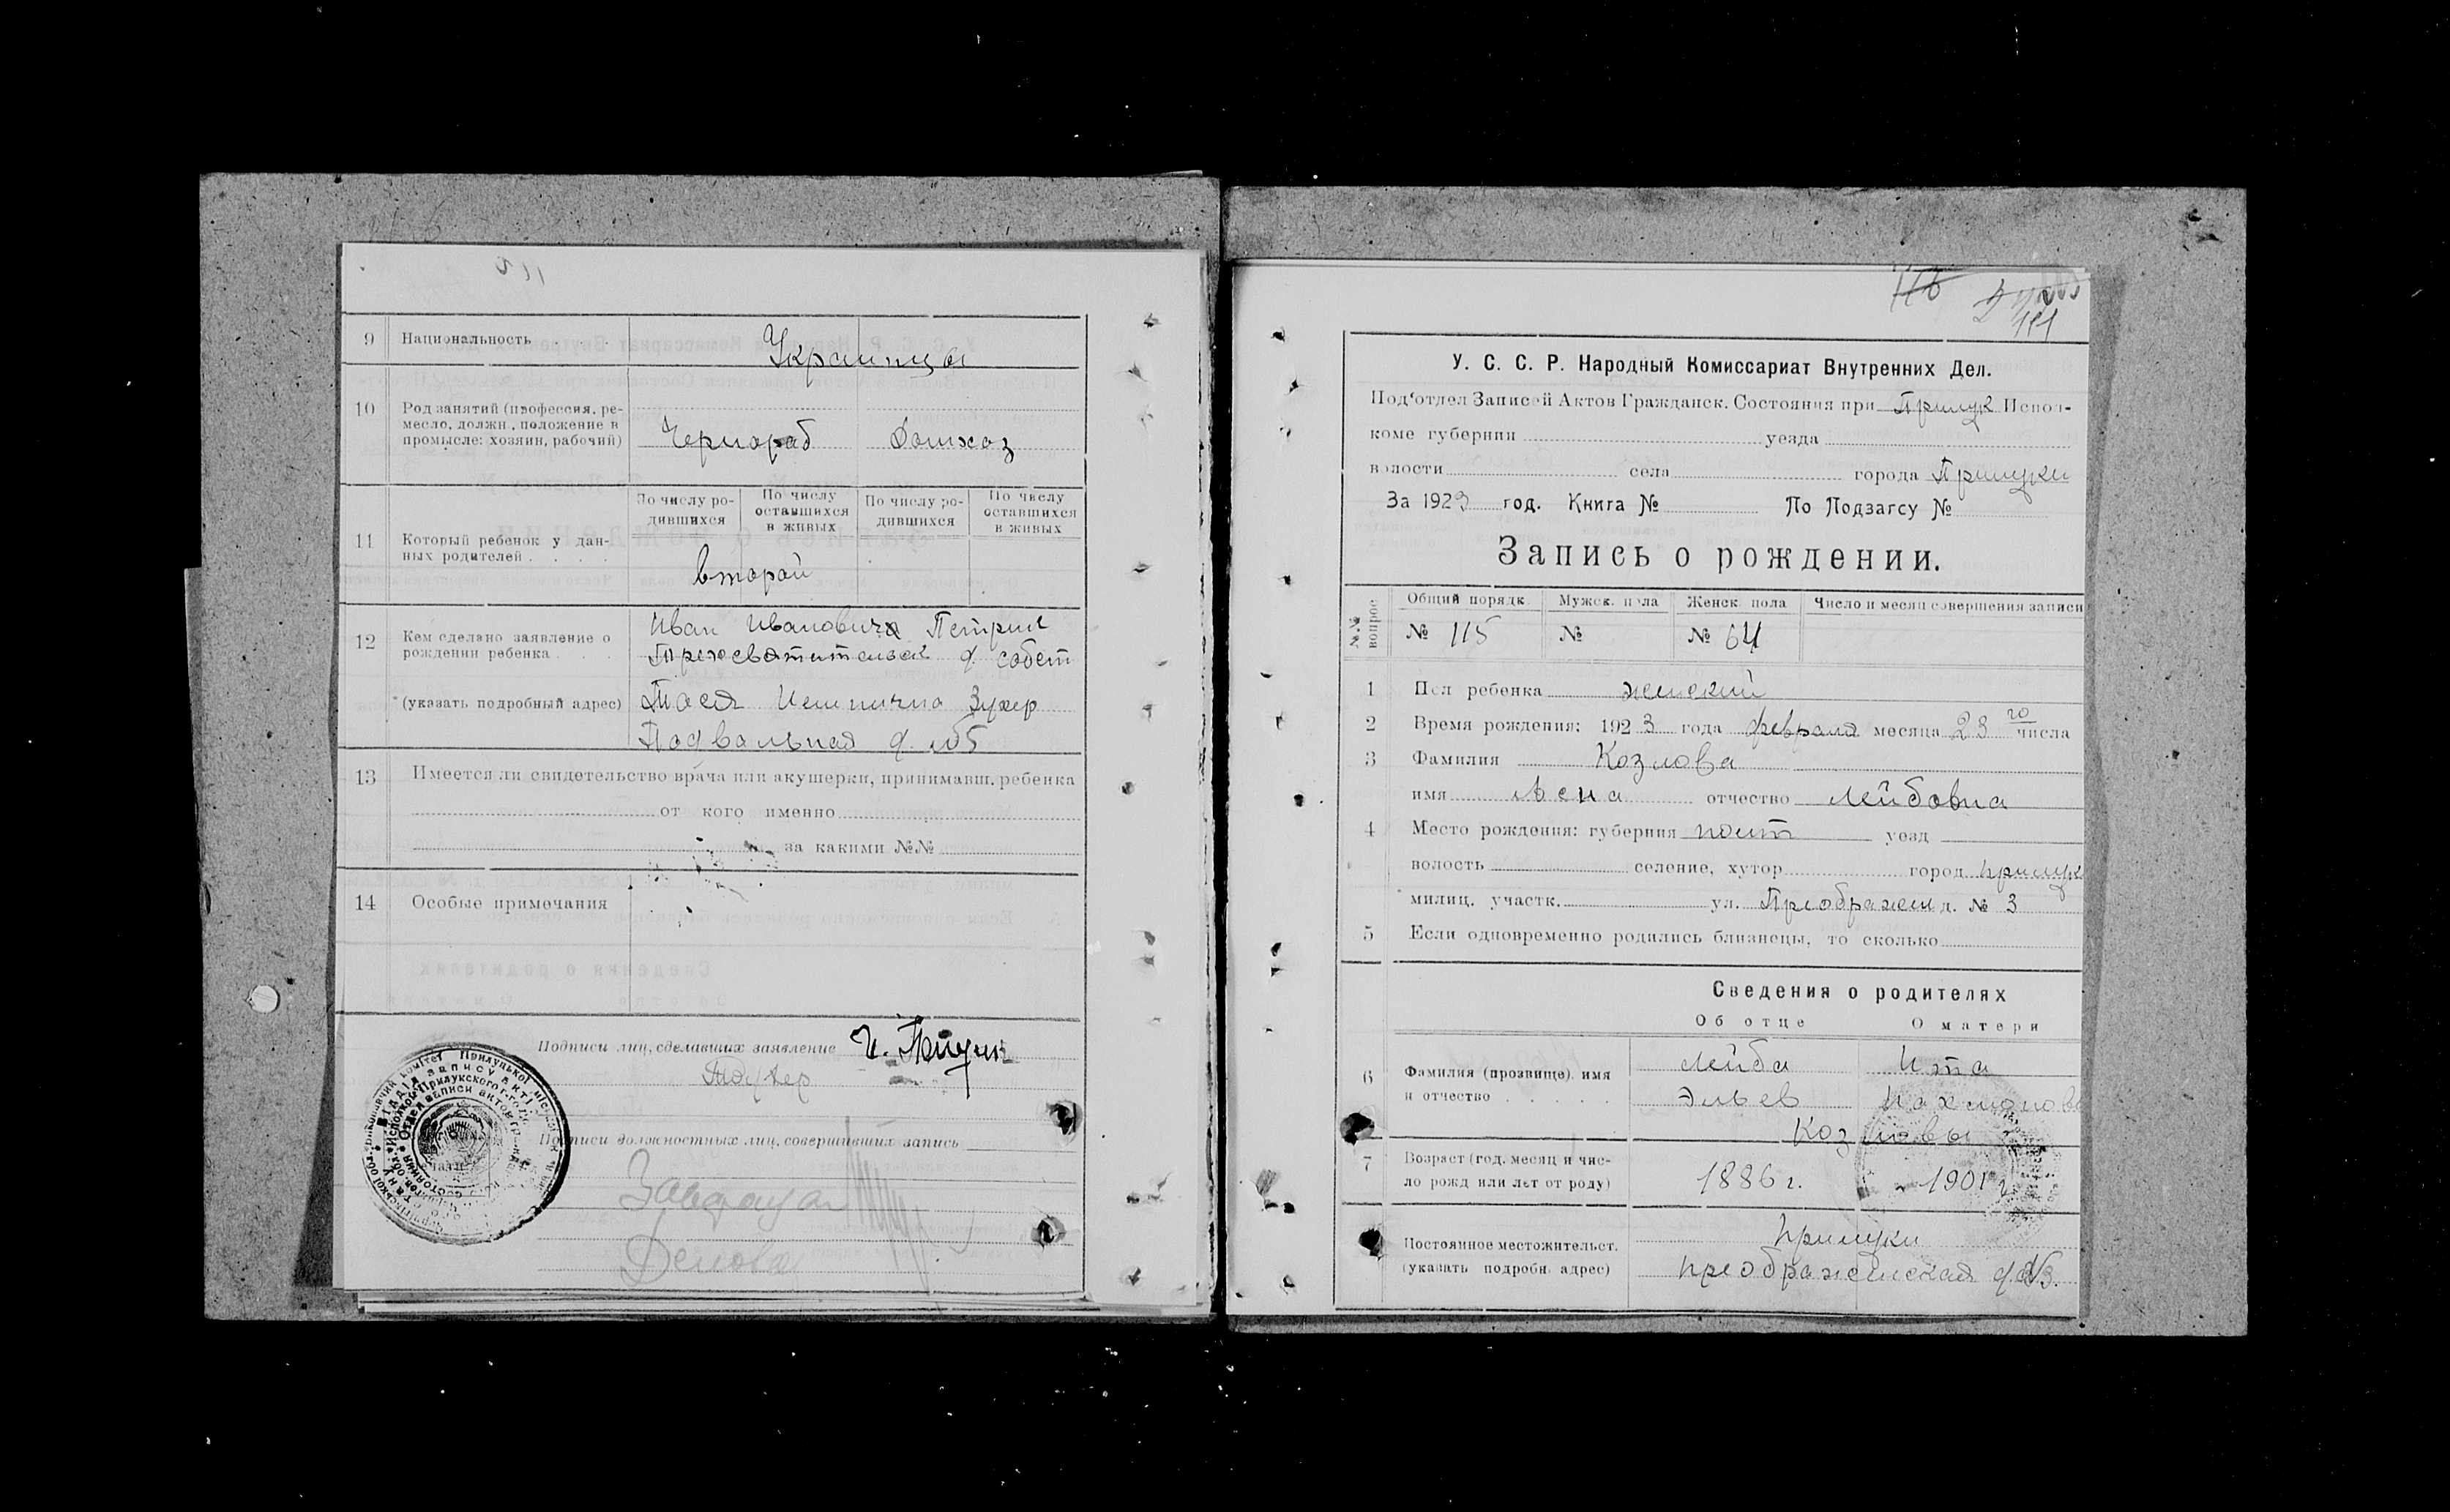 9 Национальность . . . . Украинцы
10 Род занятий (профессия, ре-
месло, должн., положение в
промысле: хозяин, рабочий)
Чернораб Домхоз
По числу ро-
дившихся
По числу
оставшихся
в живых
По числу ро-
дившихся
По числу
оставшихся
в живых
11 Который ребенок у дан-
ных родителей . . . .
второй
12 Кем сделано заявление о
рождении ребенка . . .
(указать подробный адрес)
Иван Иванович
Трехсвятительск д. совет
Тася Зухер
Подвальная д. №5
13 Имеется ли свидетельство врача или акушерки, принимавш. ребенка
от кого именно
за какими №№
14 Особые примечания
Подписи лиц, сделавших заявление
Подписи должностных лиц, совершивших запись
116
111
У. С. С. Р. Народный Комиссариат Внутренних Дел.
Под'отдел Записей Актов Гражданск. Состояния при Прилук Испол-
коме губернии уезда
волости села города Прилуки
За 1923 год. Книга № По Подзагсу №
Запись о рождении.
№№ вопрос
Общий порядк. Мужск. пола Женск. пола Число и месяц совершения записи
№ 115 № № 64
1 Пол ребенка женский
2 Время рождения: 1923 года февраля месяца 23 го числа
3 Фамилия Козлова
имя Лена отчество Лейбовна
4 Место рождения: губерния полт уезд
волость селение, хутор город Прилук
милиц. участк. ул. Преображен д. № 3
5 Если одновременно родились близнецы, то сколько
Сведения о родителях
Об отце О матери
6 Фамилия (прозвище), имя
и отчество . . . . .
Лейба Ита
Эльев
Козловы
7 Возраст (год, месяц и чис-
ло рожд. или лет от роду)
1886 г. 1901 г.
Постоянное местожительст.
(указать подробн. адрес)
Прилуки
Преображенская д. №3.